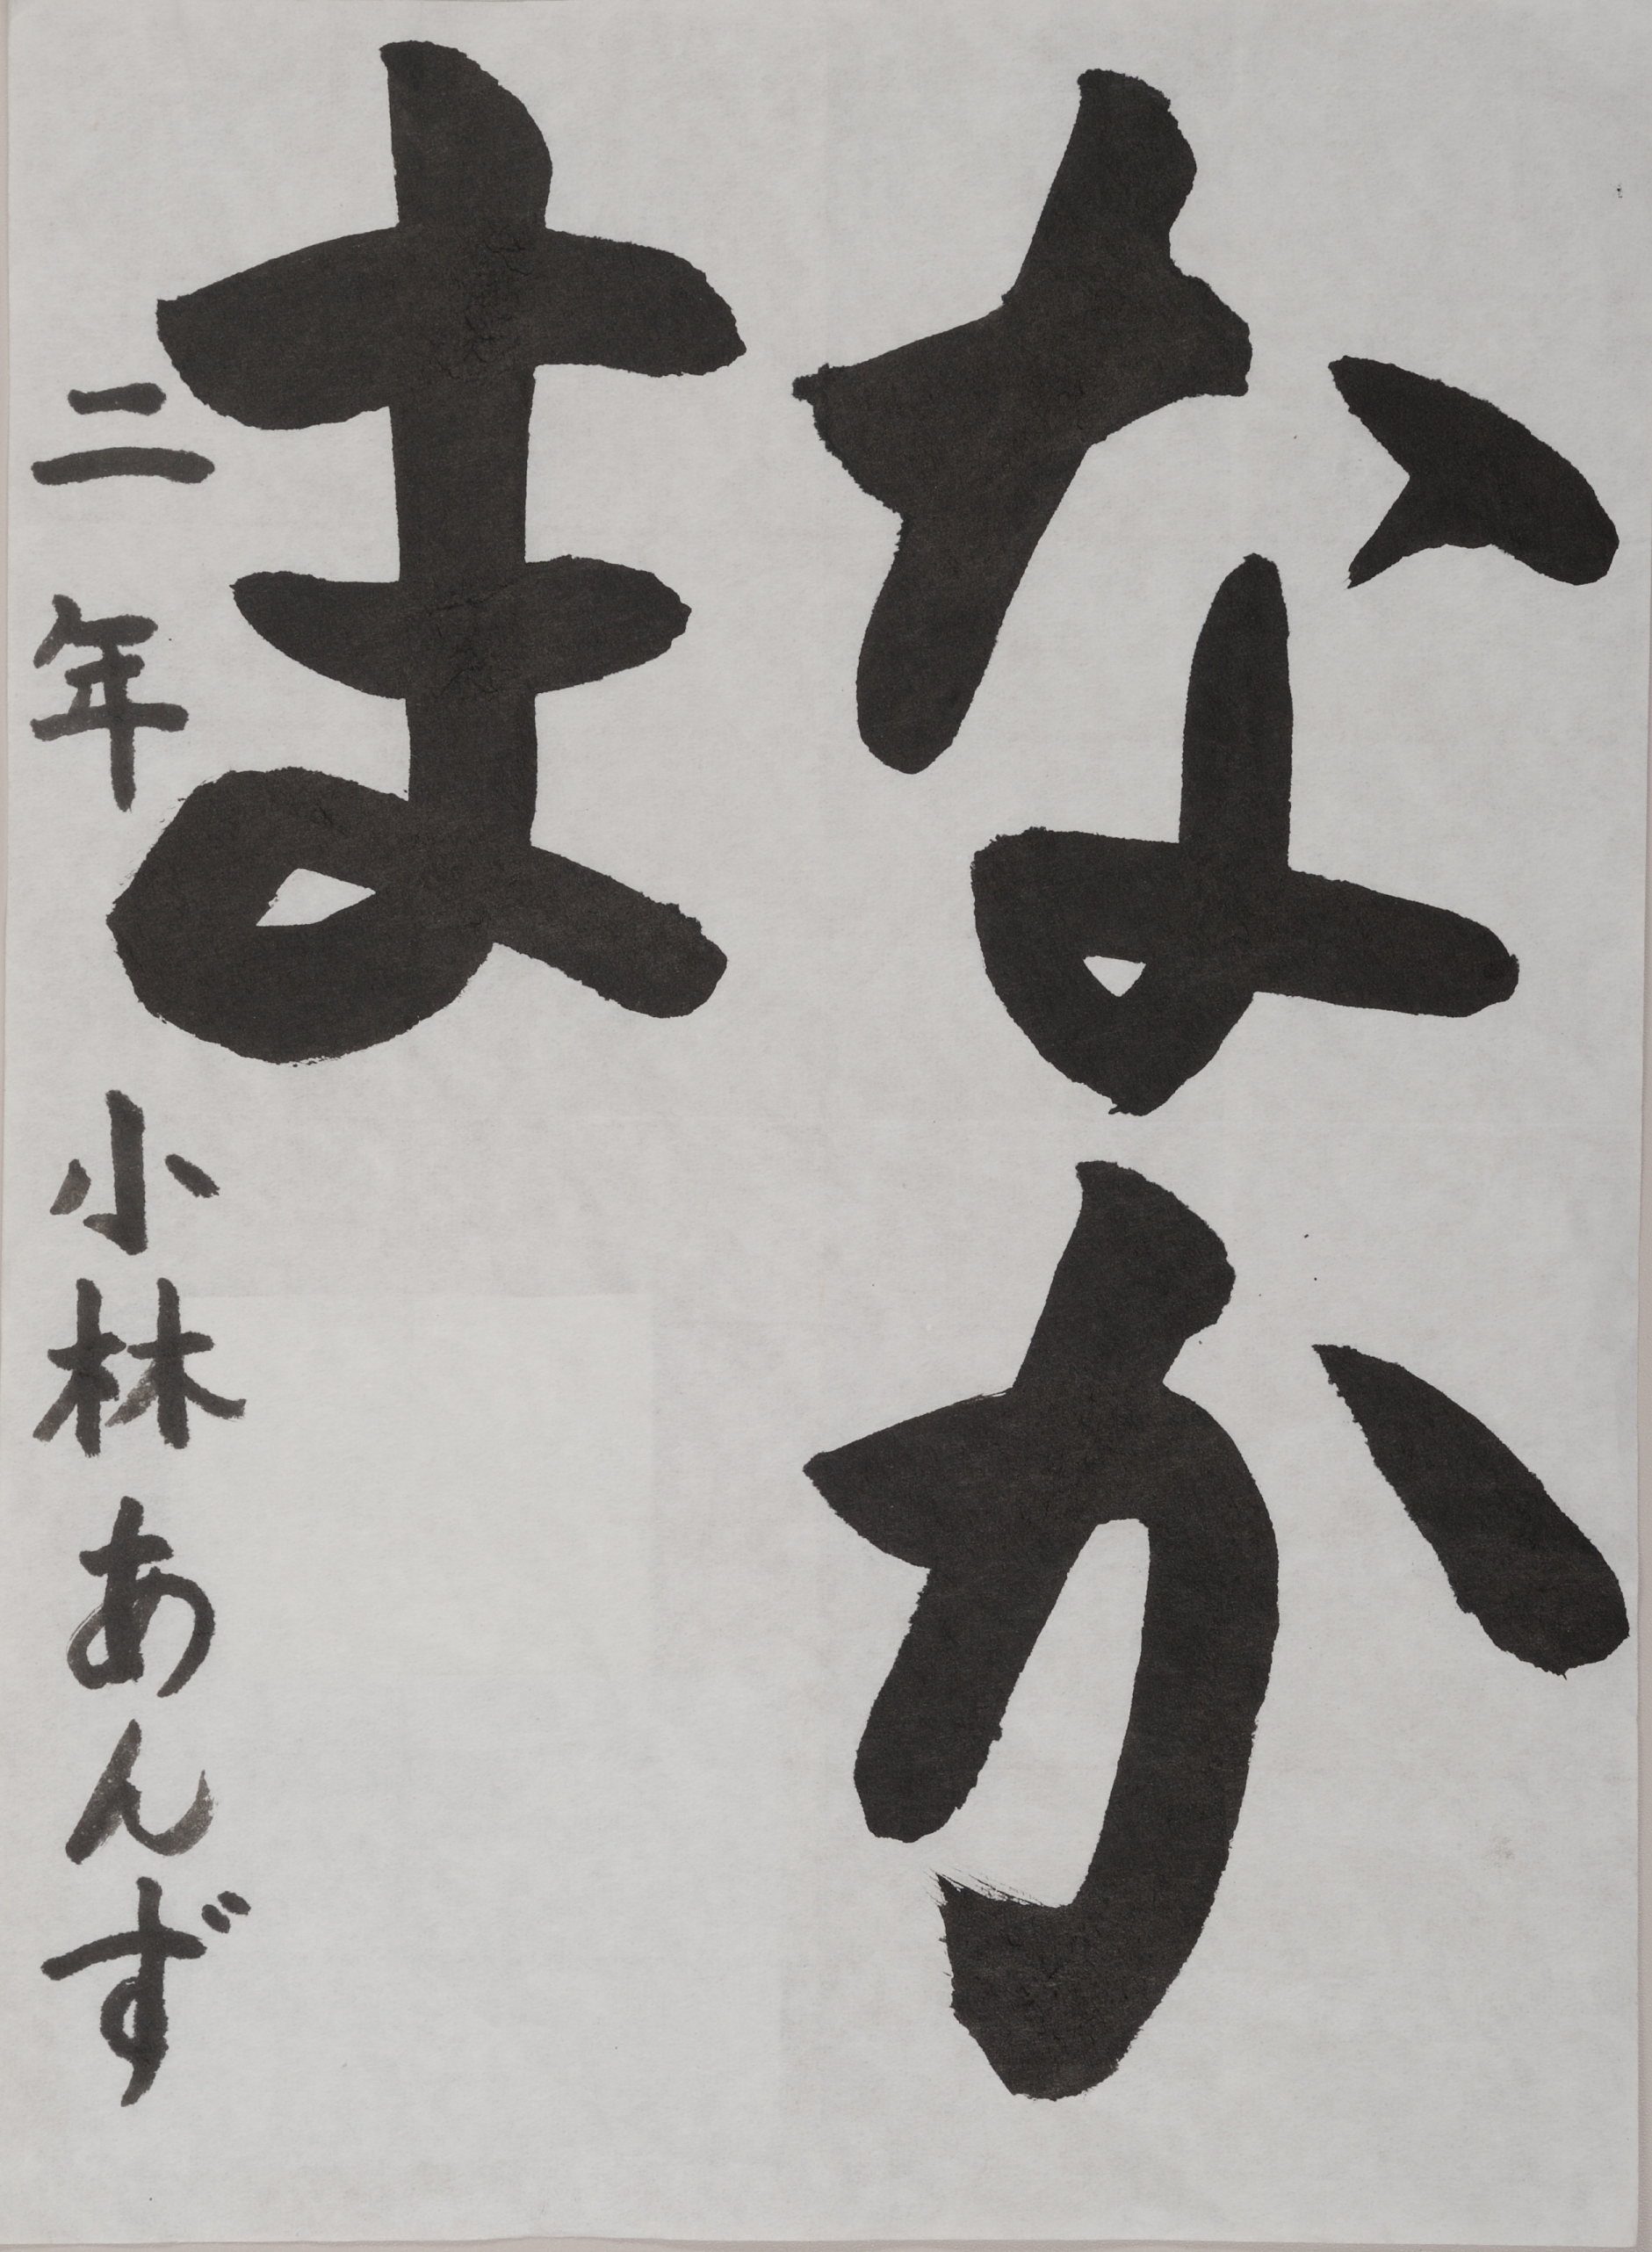 なか
ま
二年 小林あんず